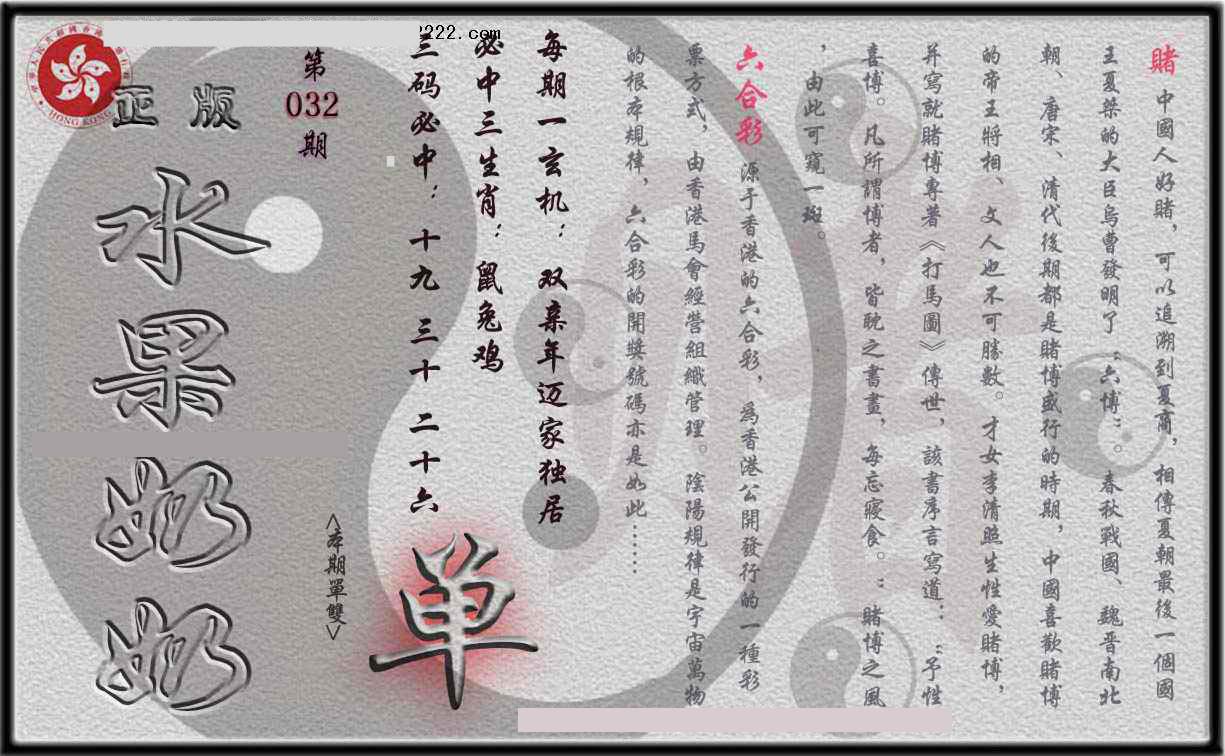 222.com
賭 中國人好賭，可以追溯到夏商，相傳夏朝最後一個國
王夏桀的大臣烏曹發明了“六博”。春秋戰國、魏晋南北
朝、唐宋、清代後期都是賭博盛行的時期，中國喜歡賭博
的帝王將相、文人也不可勝數。才女李清照生性愛賭博，
并寫就賭博專著《打馬圖》傳世，該書序言寫道：“予性
喜博。凡所謂博者，皆耽之書畫，每忘寢食。”賭博之風
，由此可窺一斑。
六合彩 源于香港的六合彩，爲香港公開發行的一種彩
票方式，由香港馬會經營組織管理。陰陽規律是宇宙萬物
的根本規律，六合彩的開獎號碼亦是如此……
每期一玄机：双亲年迈家独居
必中三生肖：鼠兔鸡
三码必中：十九 三十 二十六
单
<本期單雙>
第
032
期
正版
水果奶奶
HONG KONG